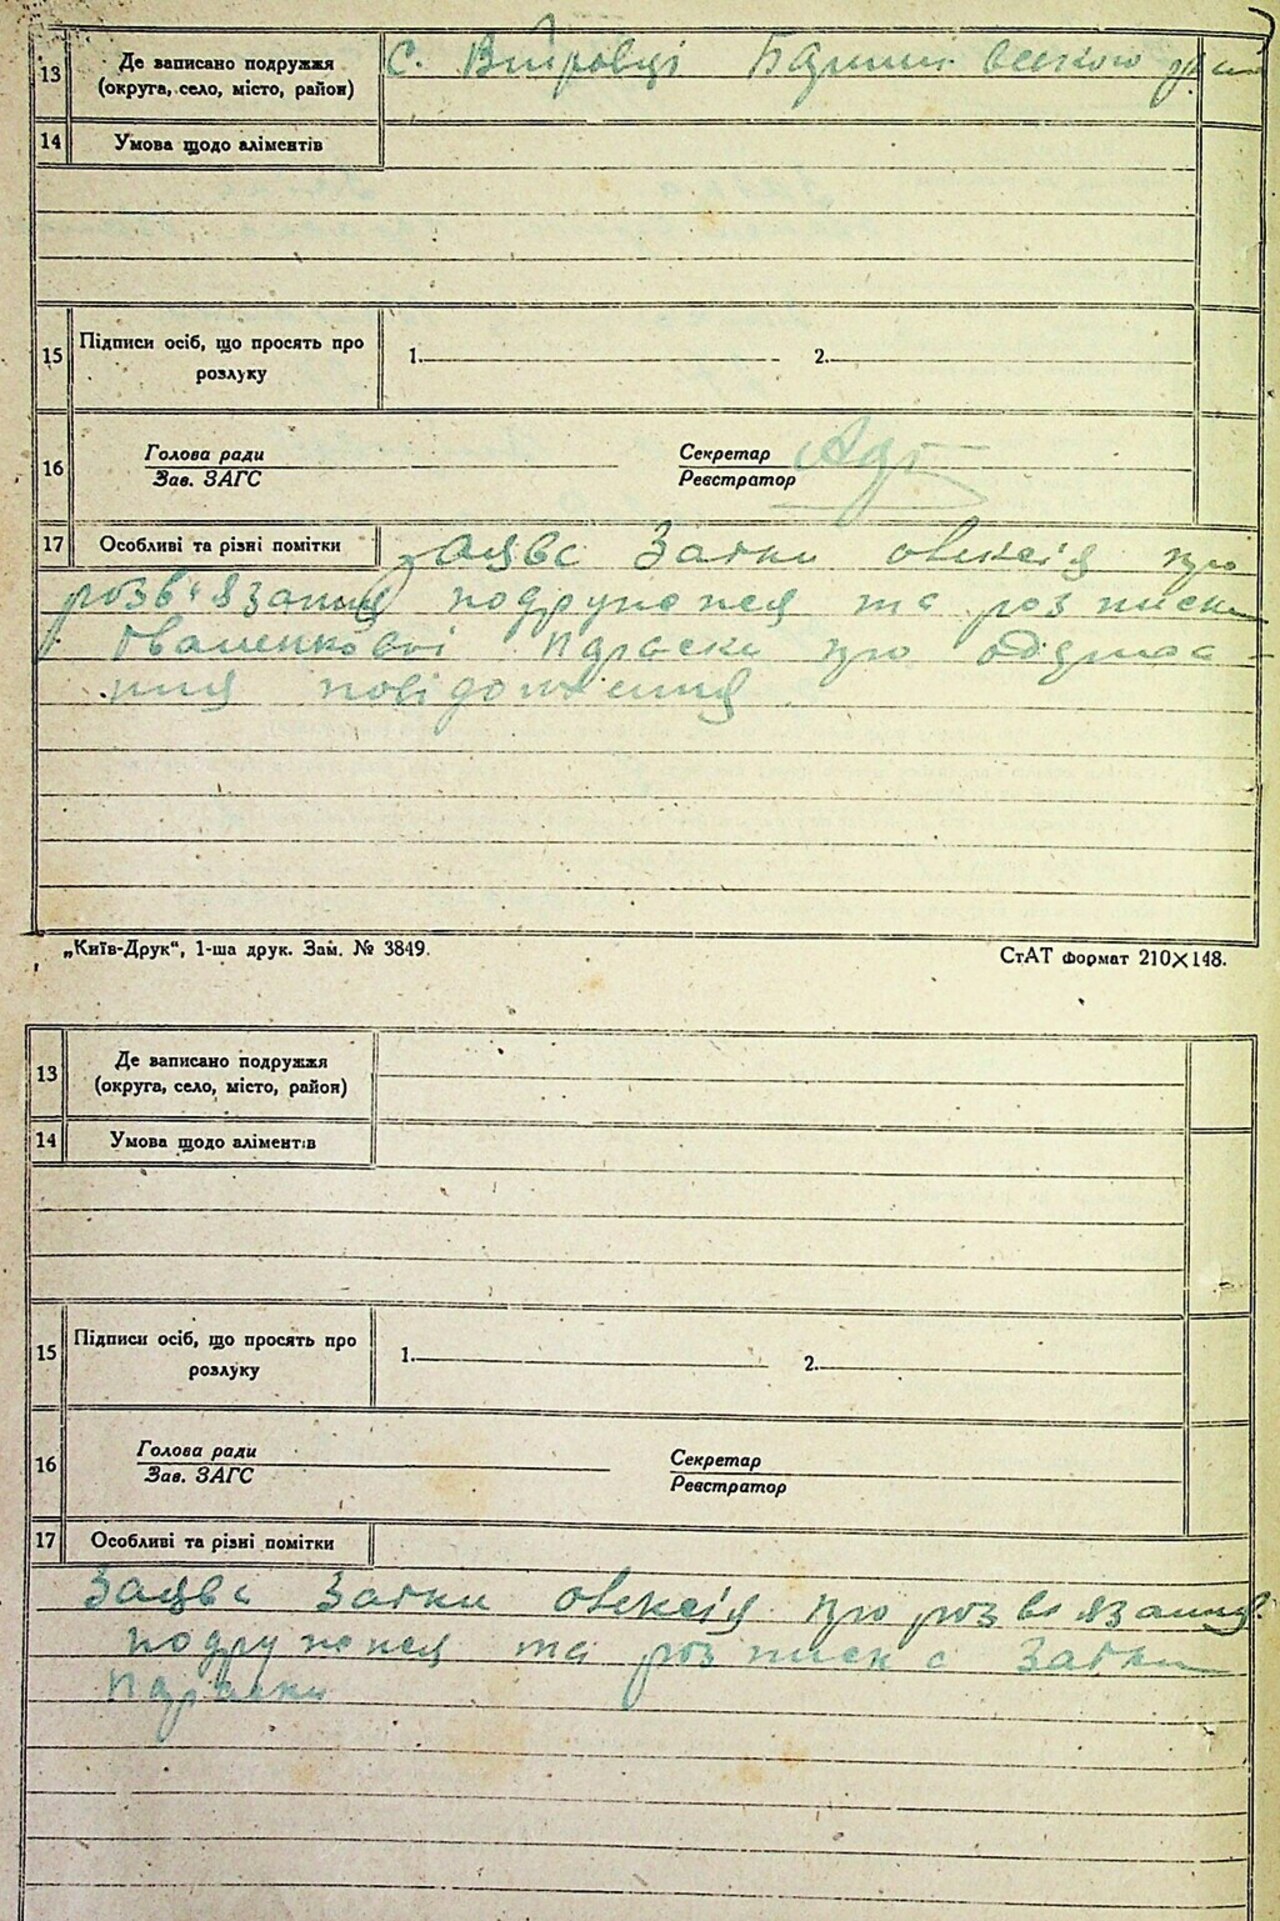 13 Де записано подружжя
(округа, село, місто, район)
с. Витровці
14 Умова щодо аліментів
15 Підписи осіб, що просять про
розлуку
1. 2.
16 Голова ради
Зав. ЗАГС
Секретар
Реєстратор
17 Особливі та різні помітки
Заява Заєки Олексія про
розв'язання подружжя та розписки
Параски про одержа-
ння повідомлення
„Київ-Друк“, 1-ша друк. Зам. № 3849.
СтАТ формат 210×148.
13 Де записано подружжя
(округа, село, місто, район)
14 Умова щодо аліментів
15 Підписи осіб, що просять про
розлуку
1. 2.
16 Голова ради
Зав. ЗАГС
Секретар
Реєстратор
17 Особливі та різні помітки
Заява Заєки Олексія про розвязання
подружжя та розписка Заєки
Параски